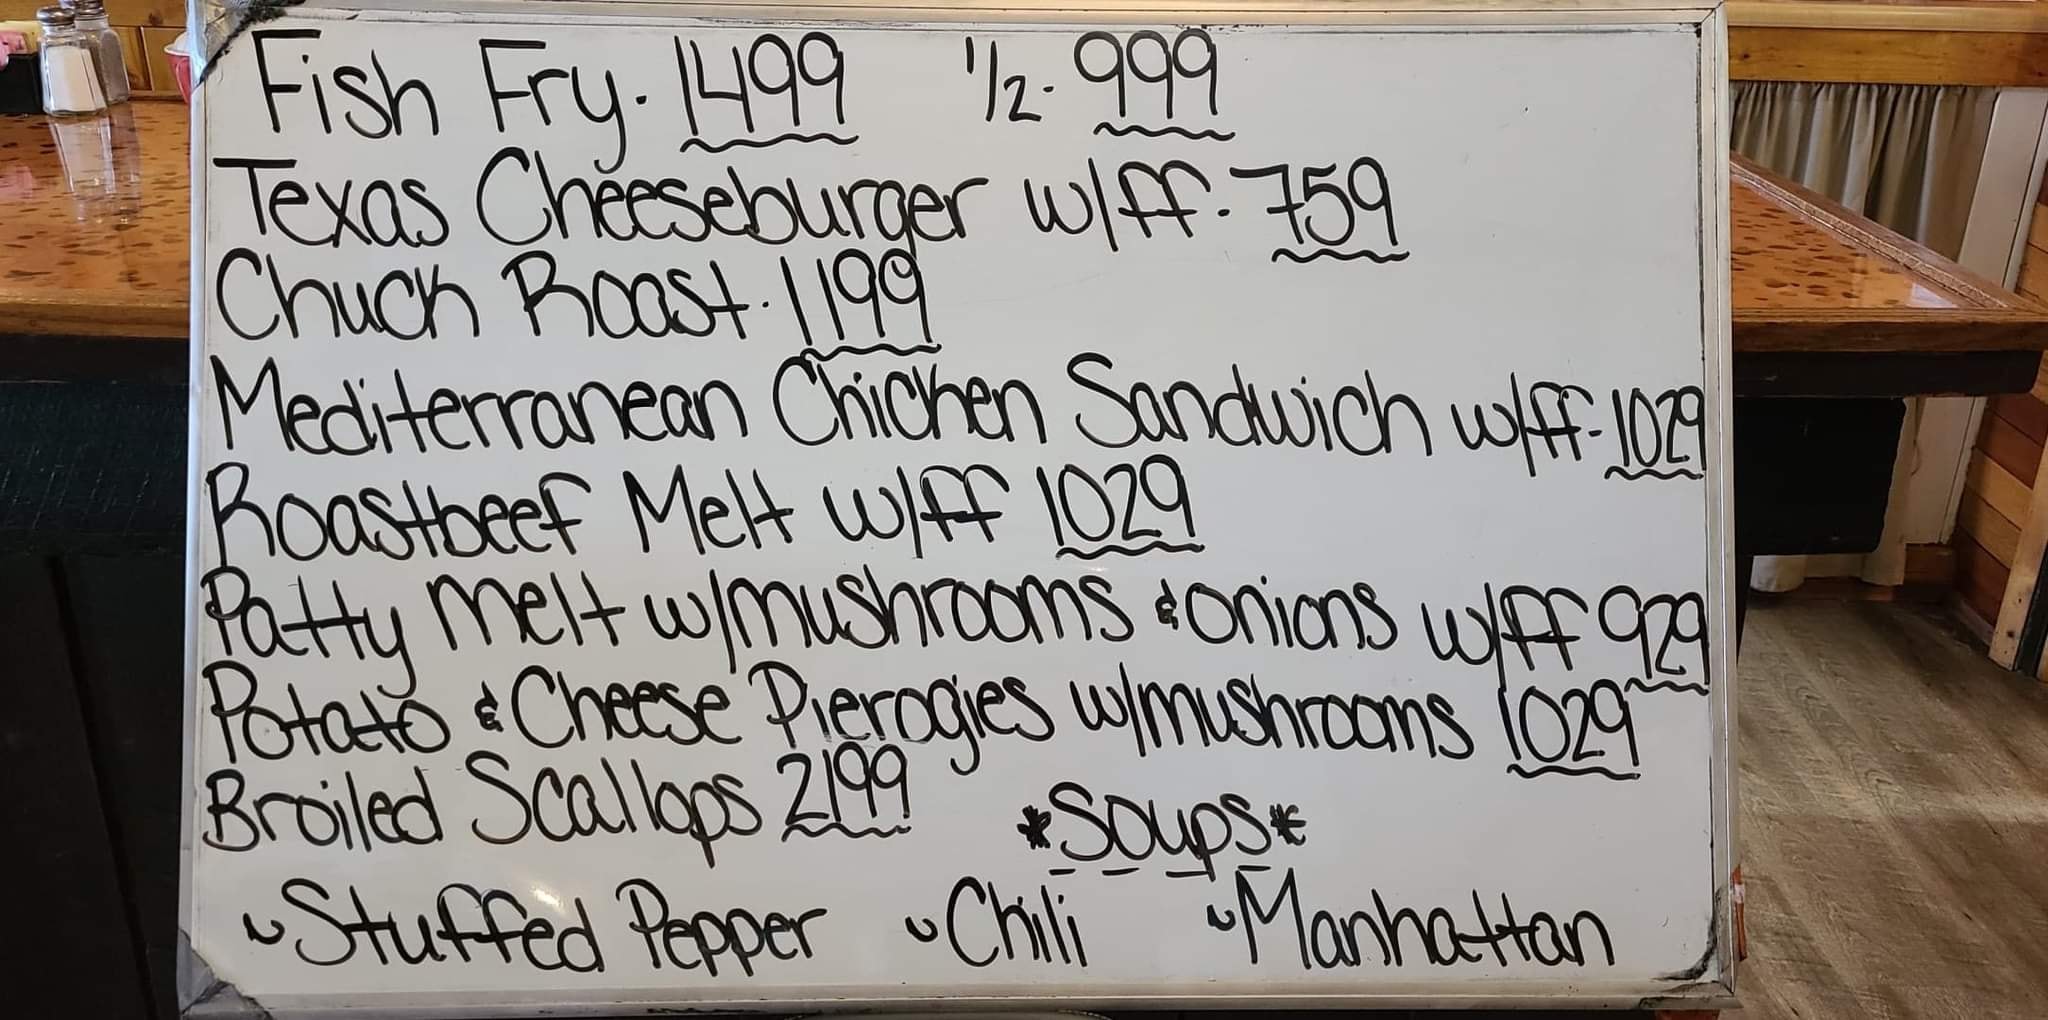 Fish Fry. 1499 1/2. 999
Texas Cheeseburger w/ff. 759
Chuck Roast. 1199
Mediterranean Chicken Sandwich w/ff-1029
Roastbeef Melt w/ff 1029
Patty melt w/mushrooms & onions w/ff 929
Potato & Cheese Pierogies w/mushrooms 1029
Broiled Scallops 2199 *Soups*
~Stuffed Pepper ~Chili ~Manhattan